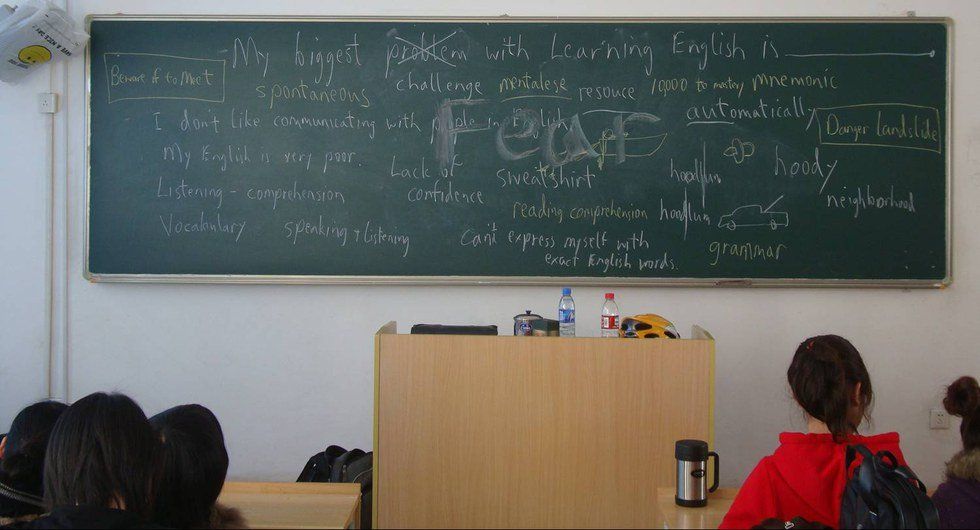 HAVE A NICE DAY
My biggest problem with Learning English is
Beware of to Meet
challenge mentalese resouce 10,000 to mastery mnemonic
spontaneous
I dont like communicating with people in English
Fear
automatically
Danger landslide
My English is very poor.
Lack of confidence
sweatshirt
hoodlum
hoody
Listening - comprehension
reading comprehension
hoodlum
neighborhood
Vocabulary
speaking + listening
Can't express myself with
exact English words.
grammar